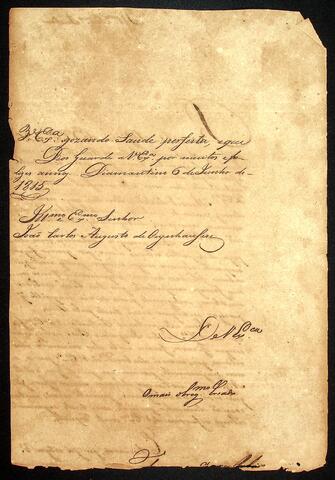 V.ª Ex.ª gozando Saude perfeita, e que
Deos Guarde a V. Ex.ª por muitos e fe-
lizes annos Diamantino 6 de Junho de
1815
Ill.mo e Ex.mo Senhor
João Carlos Augusto de Oeynhausen
De V. Ex.cia
O mais obrig.mo Creado